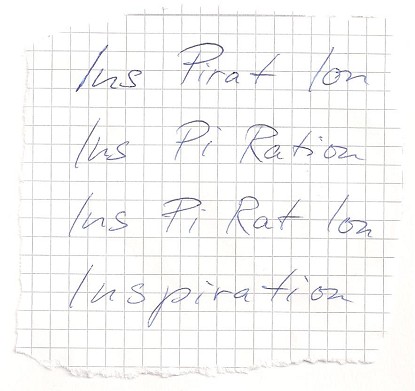 Ins Pirat Ion
Ins Pi Ration
Ins Pi Rat Ion
Inspiration